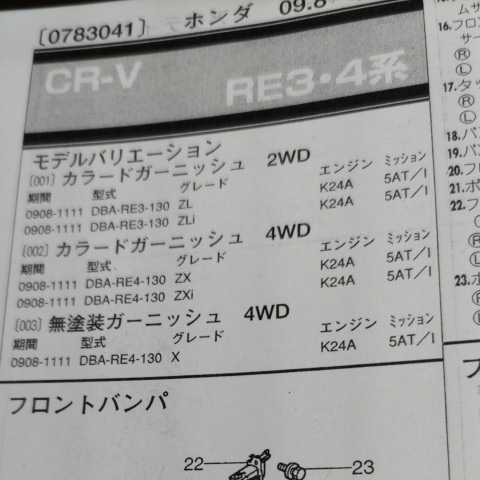 〔0783041〕 ホンダ 09.8
CR-V
RE3・4系
モデルバリエーション
〔001〕 カラードガーニッシュ 2WD
期間 型式 グレード エンジン ミッション
0908-1111 DBA-RE3-130 ZL K24A 5AT/I
0908-1111 DBA-RE3-130 ZLi K24A 5AT/I
〔002〕 カラードガーニッシュ 4WD
期間 型式 グレード エンジン ミッション
0908-1111 DBA-RE4-130 ZX K24A 5AT/I
0908-1111 DBA-RE4-130 ZXi K24A 5AT/I
〔003〕 無塗装ガーニッシュ 4WD
期間 型式 グレード エンジン ミッション
0908-1111 DBA-RE4-130 X K24A 5AT/I
フロントバンパ
22
23
ムサ
16.フロン
サー
Ⓡ
Ⓛ
17.タッ
Ⓡ
Ⓛ
18.バン
19.バ
20.フ
21.ボ
22.フ
Ⓡ
Ⓛ
23.ボ
Ⓡ
Ⓛ
フ